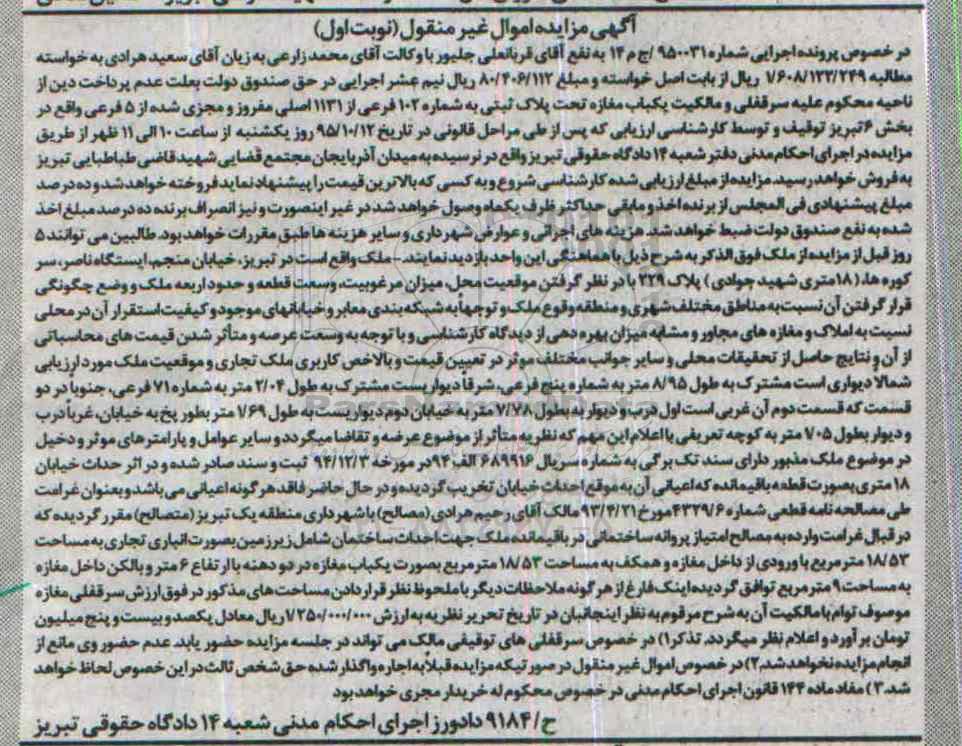 آگهی مزایده اموال غیر منقول (نوبت اول)
در خصوص پرونده اجرایی شماره ۹۵۰۰۳۱ /ج م ۱۴ به نفع آقای قربانعلی جلیور با وکالت آقای محمد زارعی به زیان آقای سعید هرادی به خواسته
مطالبه ۱/۶۰۸/۱۲۲/۲۴۹ ریال از بابت اصل خواسته و مبلغ ۸۰/۴۰۶/۱۱۲ ریال نیم عشر اجرایی در حق صندوق دولت بعلت عدم پرداخت دین از
ناحیه محکوم علیه سرقفلی و مالکیت یکباب مغازه تحت پلاک ثبتی به شماره ۱۰۲ فرعی از ۱۱۳۱ اصلی مفروز و مجزی شده از ۵ فرعی واقع در
بخش ۶ تبریز توقیف و توسط کارشناسی ارزیابی که پس از طی مراحل قانونی در تاریخ ۹۵/۱۰/۱۲ روز یکشنبه از ساعت ۱۰ الی ۱۱ ظهر از طریق
مزایده در اجرای احکام مدنی دفتر شعبه ۱۴ دادگاه حقوقی تبریز واقع در نرسیده به میدان آذربایجان مجتمع قضایی شهید قاضی طباطبایی تبریز
به فروش خواهد رسید. مزایده از مبلغ ارزیابی شده کارشناسی شروع و به کسی که بالاترین قیمت را پیشنهاد نماید فروخته خواهد شد و ده درصد
مبلغ پیشنهادی فی المجلس از برنده اخذ و مابقی حداکثر ظرف یکماه وصول خواهد شد در غیر اینصورت و نیز انصراف برنده ده درصد مبلغ اخذ
شده به نفع صندوق دولت ضبط خواهد شد. هزینه های اجرائی و عوارض شهرداری و سایر هزینه ها طبق مقررات خواهد بود. طالبین می توانند ۵
روز قبل از مزایده از ملک فوق الذکر به شرح ذیل با هماهنگی این واحد بازدید نمایند. -ملک واقع است در تبریز، خیابان منجم، ایستگاه ناصر، سر
کوره ها، (۱۸ متری شهید جوادی) پلاک ۳۲۹ با در نظر گرفتن موقعیت محل، میزان مرغوبیت، وسعت قطعه و حدود اربعه ملک و وضع چگونگی
قرار گرفتن آن نسبت به مناطق مختلف شهری و منطقه وقوع ملک و توجهاً به شبکه بندی معابر و خیابانهای موجود و کیفیت استقرار آن در محلی
نسبت به املاک و مغازه های مجاور و مشابه میزان بهره دهی از دیدگاه کارشناسی و با توجه به وسعت عرصه و متأثر شدن قیمت های محاسباتی
از آن و نتایج حاصل از تحقیقات محلی و سایر جوانب مختلف موثر در تعیین قیمت و بالاخص کاربری ملک تجاری و موقعیت ملک مورد ارزیابی
شمالا دیواری است مشترک به طول ۸/۹۵ متر به شماره پنج فرعی، شرقاً دیواریست مشترک به طول ۲/۰۴ متر به شماره ۷۱ فرعی، جنوباً در دو
قسمت که قسمت دوم آن غربی است اول درب و دیوار به بطول ۷/۷۸ متر به خیابان دوم دیواریست به طول ۱/۶۹ متر بطور پخ به خیابان، غرباً درب
و دیوار بطول ۱/۰۵ متر به کوچه تعریفی با اعلام این مهم که نظریه متأثر از موضوع عرضه و تقاضا میگردد و سایر عوامل و پارامترهای موثر و دخیل
در موضوع ملک مذبور دارای سند تک برگی به شماره سریال ۶۸۹۹۱۶ الف ۹۴ در مورخه ۹۴/۱۲/۳ ثبت و سند صادر شده و در اثر حداث خیابان
۱۸ متری بصورت قطعه باقیمانده که اعیانی آن به موقع احداث خیابان تخریب گردیده و در حال حاضر فاقد هر گونه اعیانی می باشد و بعنوان غرامت
طی مصالحه نامه قطعی شماره ۴۳۲۹/۶ مورخ ۹۳/۴/۲۱ مالک آقای رحیم هرادی (مصالح) با شهرداری منطقه یک تبریز (متصالح) مقرر گردیده که
در قبال غرامت وارده به مصالح امتیاز پروانه ساختمانی در باقیمانده ملک جهت احداث ساختمان شامل زیرزمین بصورت انباری تجاری به مساحت
۱۸/۵۳ متر مربع با ورودی از داخل مغازه و همکف به مساحت ۱۸/۵۳ متر مربع بصورت یکباب مغازه در دو دهنه با ارتفاع ۶ متر و بالکن داخل مغازه
به مساحت ۹ متر مربع توافق گردیده اینک فارغ از هر گونه ملاحظات دیگر با ملحوظ نظر قرار دادن مساحت های مذکور در فوق ارزش سرقفلی مغازه
موصوف توام با مالکیت آن به شرح مرقوم به نظر اینجانبان در تاریخ تحریر نظریه به ارزش ۱/۲۵۰/۰۰۰/۰۰۰ ریال معادل یکصد و بیست و پنج میلیون
تومان برآورد و اعلام نظر میگردد. تذکر۱) در خصوص سرقفلی های توقیفی مالک می تواند در جلسه مزایده حضور یابد. عدم حضور وی مانع از
انجام مزایده نخواهد شد. ۲) در خصوص اموال غیر منقول در صورتیکه مزایده قبلاً به اجاره واگذار شده حق شخص ثالث در این خصوص لحاظ خواهد
شد. ۳) مفاد ماده ۱۴۴ قانون اجرای احکام مدنی در خصوص محکوم له خریدار مجری خواهد بود
ح/۹۱۸۴ دادورز اجرای احکام مدنی شعبه ۱۴ دادگاه حقوقی تبریز
ParsNamadData